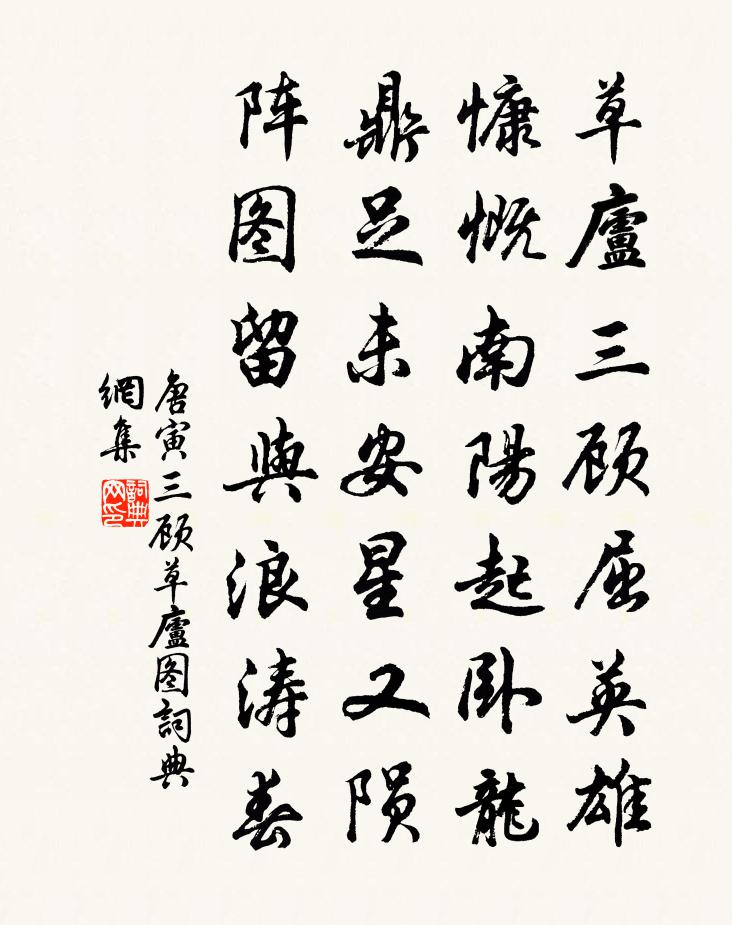 草廬三顾屈英雄
慷慨南陽起卧龍
鼎足未安星又陨
阵图留與浪涛舂
唐寅三顾草廬图詞典
網集
詞典
网印